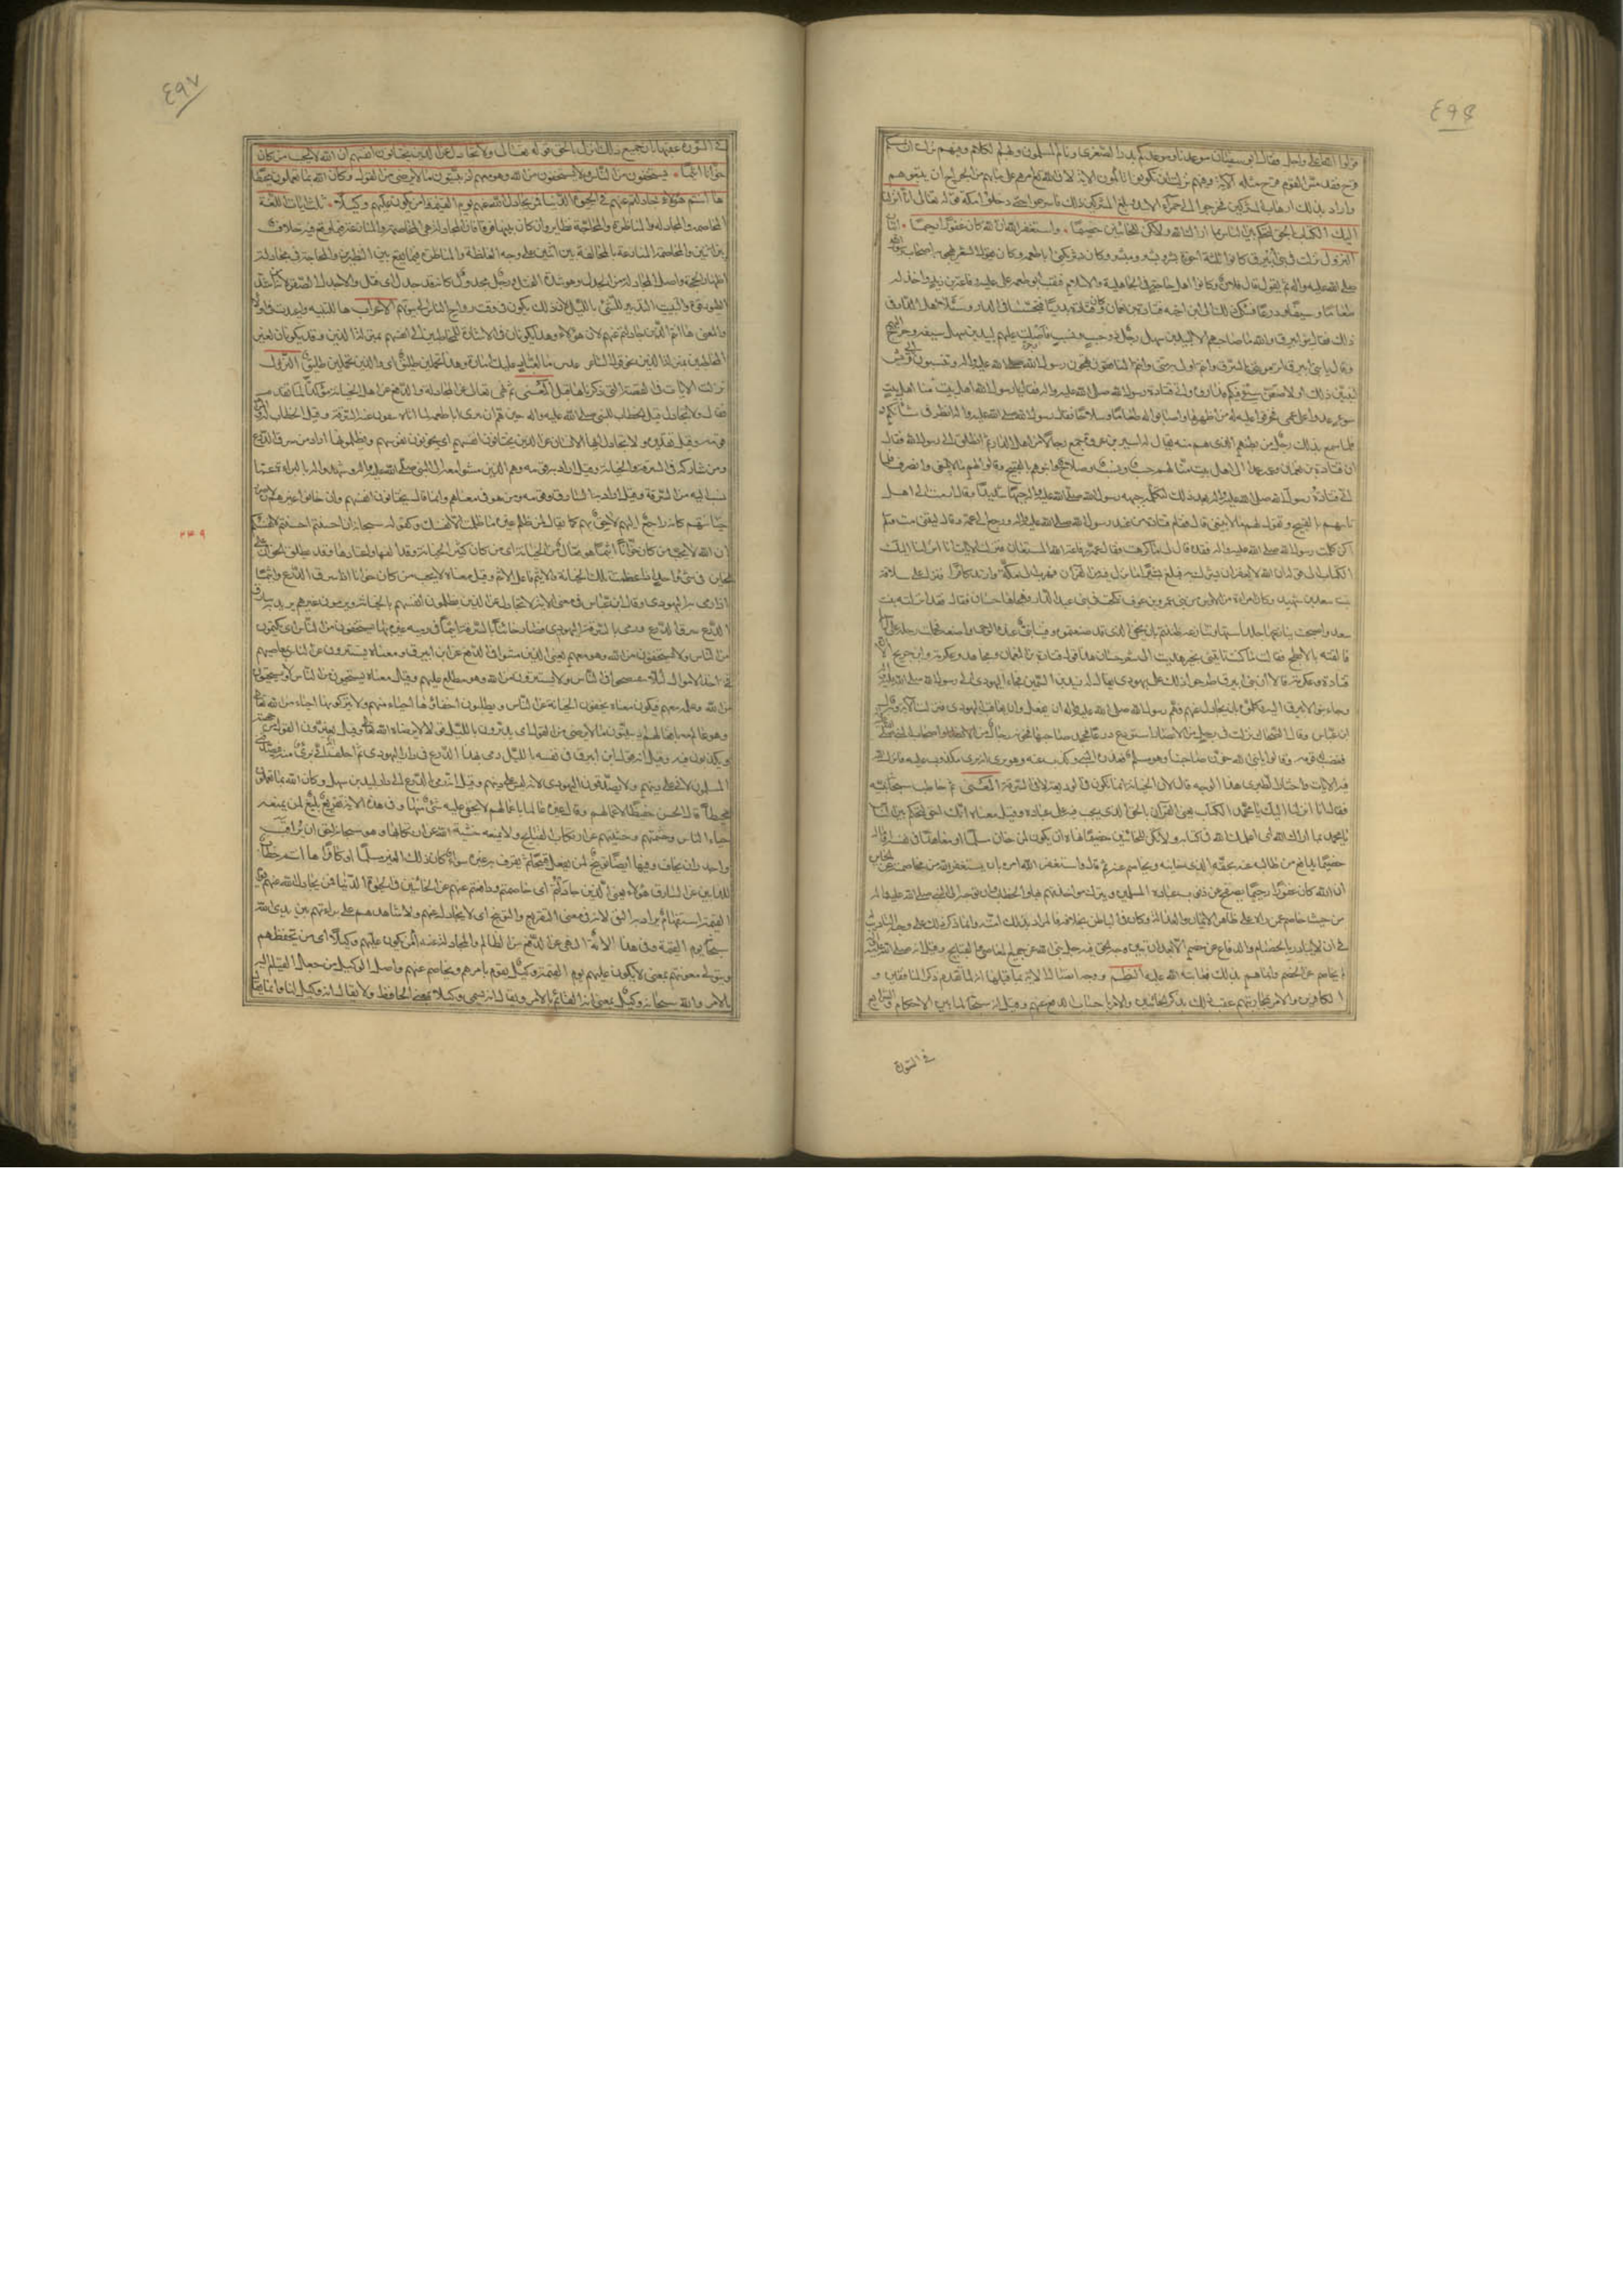 ٤٩٦
نزلوا القتلى واجل فقال ابو سفيان موعدنا وموعدكم بدر الصغرى ونام المسلمون وبهم الكلوم وفيهم نزلت ان يمسسكم
قرح فقد مس القوم قرح مثله الآية وفيهم نزلت ان تكونوا تألمون الآية لان الله تع امرهم على ما بهم من الجراح ان يتبعوهم
واراد بذلك ارهاب المشركين فخرجوا الى حمراء الاسد وبلغ المشركين ذلك فاسرعوا حتى دخلوا مكة قوله تعالى انا انزلنا
اليك الكتاب بالحق لتحكم بين الناس بما اراك الله ولا تكن للخائنين خصيما واستغفر الله ان الله كان غفورا رحيما
النزول نزلت في بني ابيرق كانوا ثلثة اخوة بشر وبشير ومبشر وكان بشر يكنى ابا طعمه وكان يقول الشعر يهجو به اصحاب رسول الله
صلى الله عليه واله ثم يقول قاله فلان وكانوا اهل حاجة في الجاهلية والاسلام فنقب ابو طعمه على علية رفاعة بن زيد واخذ له
طعاما وسيفا ودرعا فشكى ذلك الى ابن اخيه قتادة بن نعمان وكان قتادة بدريا فتجسسا في الدار وسألا اهل الدار في
ذلك فقال بنو ابيرق والله ما صاحبكم الا لبيد بن سهل رجل ذو حسب ونسب فاصلت عليهم لبيد بن سهل سيفه وخرج اليهم
وقال يا بني ابيرق اترمونني بالسرق وانتم اولى به مني وانتم المنافقون تهجون رسول الله صلى الله عليه واله وتنسبون ذلك الى قريش
لتبينن ذلك او لاضعن سيفي فيكم فداروه واتى قتادة رسول الله صلى الله عليه واله فقال يا رسول الله ان اهل بيت منا اهل بيت
سوء عدوا على عمي فخرقوا علية له من ظهرها واصابوا له طعاما وسلاحا فقال رسول الله صلى الله عليه واله انظروا في شأنكم
فلما سمع بذلك رجل من بطنهم الذي هم منه يقال له اسير بن عروة جمع رجالا من اهل الدار ثم انطلق الى رسول الله فقال
ان قتادة بن نعمان وعمه عمدا الى اهل بيت منا لهم حسب ونسب وصلاح وابنوهم بالقبيح وقالوا لهم ما لا ينبغي وانصرف فلما
اتى قتادة رسول الله صلى الله عليه واله بعد ذلك ليكلمه جبهه رسول الله صلى الله عليه واله جبها شديدا وقال عمدت الى اهل
تأبنهم بالقبيح وتقول لهم ما لا ينبغي قال فقام قتادة من عند رسول الله صلى الله عليه واله ورجع الى عمه وقال ليتني مت ولم
اكن كلمت رسول الله صلى الله عليه واله فقد قال لي ما كرهت فقال عمه رفاعة الله المستعان فنزلت الايات انا انزلنا اليك
الكتاب الى قوله ان الله لا يغفر ان يشرك به فبلغ بشيرا ما نزل فيه من القرآن فهرب الى مكة وارتد كافرا فنزل على سلافة
بنت سعد بن شهيد وكانت امراة من الاوس من بني عمرو بن عوف نكحت في بني عبد الدار فهجاها حسان فقال فقد انزلته بنت
سعد واصبحت ينازعها جلد استها وتنازعه ظننتم بان يخفى الذي قد صنعتم وفينا نبي عنده الوحي واضعه فحملت رحله على راسها
فالقته بالابطح فقالت ما كنت تأتيني بخير اهديت الي شعر حسان هذا قول قتادة بن النعمان ومجاهد وعكرمة وابن جريج الا ان
قتادة وعكرمة قالا ان بني ابيرق طرحوا ذلك على يهودي يقال له زيد بن السمين فجاء اليهودي الى رسول الله صلى الله عليه واله
وجاء بنو الابيرق اليه وكلموه بان يجادل عنهم فهم رسول الله صلى الله عليه واله ان يفعل وان يعاقب اليهودي فنزلت الآية وبه قال
ابن عباس وقال الضحاك نزلت في رجل من الانصار استودع درعا فجحد صاحبها فخونه رجال من الانصار
فغضب له قومه وقالوا يا نبي الله خون صاحبنا وهو مسلم فعذره النبي وكذب عنه وهو يرى انه بري مكذوب عليه فانزل الله
فيه الايات واختار الطبري هذا الوجه قال لان الخيانة انما تكون في الوديعة لا في السرقة المعنى ثم خاطب سبحانه نبيه
فقال انا انزلنا اليك يا محمد الكتاب يعني القرآن بالحق الذي يجب لله على عباده وقيل معناه انك احق به لتحكم بين الناس
يا محمد بما اراك الله اي اعلمك الله في كتابه ولا تكن للخائنين خصيما نهاه ان يكون لمن خان مسلما او معاهدا في نفسه او ماله
خصيما يدافع من طالبه عنه بحقه الذي خانه فيه ويخاصم عنه ثم قال واستغفر الله امره بان يستغفر الله من مخاصمته عن الخائن
ان الله كان غفورا رحيما يصفح عن ذنوب عباده المسلمين ويترك مؤاخذتهم بها والخطاب وان توجه الى النبي صلى الله عليه واله
من حيث خاصم عمن رآه على ظاهر الايمان والعدالة وكان في الباطن بخلافه فالمراد بذلك امته وانما ذكر ذلك على وجه التأديب له
في ان لا يبادر بالخصام والدفاع عن خصم الا بعد ان يتبين وجه الحق فيه جل نبي الله عن جميع المعاصي والقبايح وقيل انه صلى الله عليه واله
لم يخاصم عن الخصم وانما هم بذلك فعاتبه الله عليه النظم ووجه اتصال الآية بما قبلها انه لما تقدم ذكر المنافقين و
الكافرين والامر بمجانبتهم عقب ذلك بذكر الخائنين والامر باجتناب الدفع عنهم وقيل انه سبحانه لما بين الاحكام والشرايع
في السورة
٤٩٧
في السورة عقبها بان جميع ذلك انزل بالحق قوله تعالى ولا تجادل عن الذين يختانون انفسهم ان الله لا يحب من كان
خوانا اثيما يستخفون من الناس ولا يستخفون من الله وهو معهم اذ يبيتون ما لا يرضى من القول وكان الله بما يعملون محيطا
ها انتم هؤلاء جادلتم عنهم في الحيوة الدنيا فمن يجادل الله عنهم يوم القيمة ام من يكون عليهم وكيلا ثلث ايات اللغة
المخاصمة والمجادلة والمناظرة والمحاجة نظاير وان كان بينها فرق فان المجادلة هي المخاصمة والمنازعة فيما وقع فيه خلاف
بين اثنين والمخاصمة المنازعة بالمخالفة بين اثنين على وجه الغلظة والمناظرة فيما يقع بين النظيرين والمحاجة في محاولة
اظهار الحجة واصل المجادلة من الجدل وهو شدة الفتل ورجل مجدول كانه قد جدل اي فتل والاجدل الصقر لانه من اشد
الطيور قوة والتبييت التدبير للشيء بالليل لان ذلك يكون في وقت رواح الناس الى بيوتهم الاعراب ها للتنبيه واعيدت في اولاء
والمعنى ها انتم الذين جادلتم عنهم لان هؤلاء وهذا يكونان في الاشارة للمخاطبين الى انفسهم بمنزلة الذين وقد يكونان لغير
المخاطبين بمنزلة الذين نحو قول الشاعر عدس ما لعباد عليك امارة وهذا تحملين طليق اي والذي تحملين طليق النزول
نزلت الايات في القصة التي ذكرناها قبل المعنى ثم نهى تعالى عن المجادلة والدفع عن اهل الخيانة مؤكدا لما تقدم
فقال ولا تجادل قيل الخطاب للنبي صلى الله عليه واله حين هم ان يبرئ ابا طعمه لما اتاه قوم ينفون عنه السرقة وقيل الخطاب له والمراد
قومه وقيل تقديره ولا تجادل ايها الانسان عن الذين يختانون انفسهم اي يخونون انفسهم ويظلمونها اراد من سرق الدرع
ومن شاركه في السرقة والخيانة وقيل اراد به قومه وهم الذين مشوا معه الى النبي صلى الله عليه واله وشهدوا له بالبراءة عما
نسب اليه من السرقة وقيل اراد به السارق وقومه ومن هو في معناهم وانما قال يختانون انفسهم وان خانوا غيرهم لان
خيانتهم كانها راجع اليهم لاحق بهم كما يقال لمن ظلم غيره ما ظلمت الا نفسك وكقوله سبحانه ان احسنتم احسنتم لانفسكم
ان الله لا يحب من كان خوانا اثيما هو فعال من الخيانة اي من كان كثير الخيانة وقد الفها واعتادها وقد يطلق الخوان على
الخائن في شئ واحد اذا عظمت تلك الخيانة والاثيم فاعل الاثم وقيل معناه لا يحب من كان خوانا اذا سرق الدرع واثيما
اذا رمى به اليهودي وقال ابن عباس في معنى الاية لا تجادل عن الذين يظلمون انفسهم بالخيانة ويرمون غيرهم يريد به سارق
الدرع سرق الدرع ورمى بالسرقة اليهودي فصار خائنا بالسرقة اثيما في رميه غيره بها يستخفون من الناس اي يكتمون
من الناس ولا يستخفون من الله وهو معهم يعني الذين مشوا في الدفع عن ابن ابيرق ومعناه يستترون عن الناس معاصيهم
في اخذ الاموال لئلا يفتضحوا في الناس ولا يستترون من الله وهو مطلع عليهم وقيل معناه يستحيون من الناس ولا يستحيون
من الله وعلمه معهم فيكون معناه يخفون الخيانة عن الناس ويطلبون اخفائها احياء منهم ولا يتركونها احياء من الله تعالى
وهو عالم بافعالهم اذ يبيتون ما لا يرضى من القول اي يدبرون بالليل قولا لا يرضاه الله تعالى وقيل يغيرون القول من جهته
ويكذبون فيه وقيل انه قول ابن ابيرق في نفسه بالليل ارمي بهذا الدرع في دار اليهودي ثم احلف اني بري منه فيصدقني
المسلمون لاني على دينهم ولا يصدقون اليهودي لانه ليس على دينهم وقيل انه رمى الدرع الى دار لبيد بن سهل وكان الله بما يعملون
محيطا قال الحسن حفيظا لاعمالهم وقال غيره عالما باعمالهم لا يخفى عليه شئ منها وفي هذه الاية تقريع بليغ لمن يمنعه
حياء الناس وحشمتهم عن ارتكاب القبايح ولا يمنعه خشية الله عن ارتكابها وهو سبحانه احق ان يراقب
واجدر ان يخاف وفيها ايضا توبيخ لمن يعمل قبيحا ثم يقرف به غيره سواء كان ذلك الغير مسلما او كافرا ها انتم خطاب
للذابين عن السارق هؤلاء يعني الذين جادلتم اي خاصمتم ودافعتم عنهم عن الخائنين في الحيوة الدنيا فمن يجادل الله عنهم يوم
القيمة استفهام يراد به النفي لانه في معنى التقريع والتوبيخ اي لا يجادل عنهم ولا شاهد لهم على براءتهم بين يدي الله
سبحانه يوم القيمة وفي هذه الآية النهي عن الدفع عن الظالم والمجادلة عنه ام من يكون عليهم وكيلا اي من يحفظهم
ويتولى معونتهم يعني لا يكون عليهم يوم القيمة وكيل يقوم بامرهم ويخاصم عنهم واصل الوكيل من جعل اليه القيام
بالامر والله سبحانه وكيل بمعنى انه القائم بالامر ويقال انه يسمى وكيلا بمعنى الحافظ ولا يقال انه وكيل لنا وانما يقال
٢٣٩